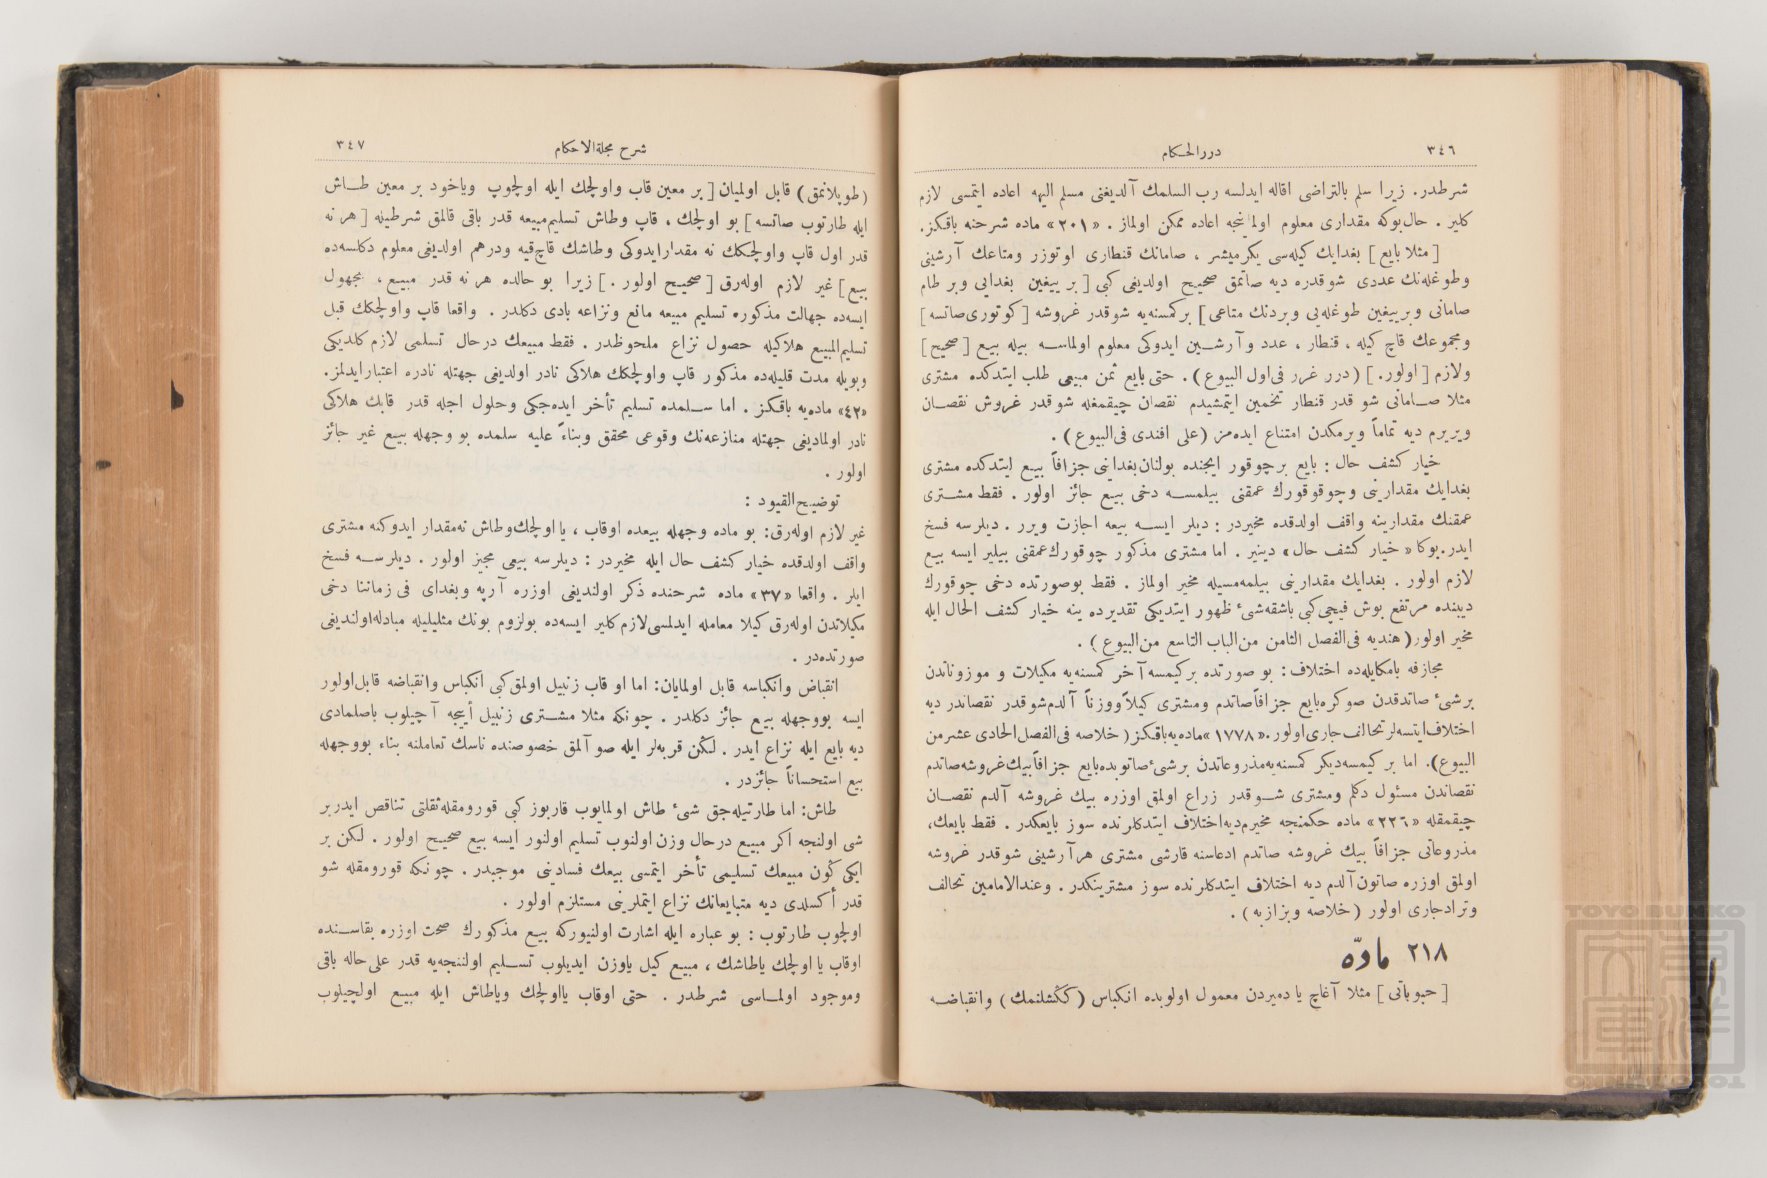 ٣٤٦
دررالحكام
شرطدر. زيرا سلم بالتراضى اقاله ايدلسه رب السلمك آلديغنى مسلم اليهه اعاده ايتمسى لازم
كلير . حال بوكه مقدارى معلوم اولمانيجه اعاده ممكن اولماز . «٢٠١» ماده شرحنه باقكز.
[مثلا بايع] بغدايك كيله‌سى يكرميشر ، صامانك قنطارى اوتوزر ومتاعك آرشينى
وطوغله‌نك عددى شو قدره ديه صاتمق صحيح اولديغى كبى [بر ييغين بغدايى وبر طام
صامانى وبر ييغين طوغله‌يى وبردنك متاعى] بركمسنه‌يه شوقدر غروشه [كوتورى صاتسه]
ومجموعك قاچ كيله ، قنطار ، عدد وآرشين ايدوكى معلوم اولماسه بيله بيع [صحيح]
ولازم [اولور.] (درر غرر فى‌اول البيوع) . حتى بايع ثمن مبيعى طلب ايتدكده مشترى
مثلا صامانى شو قدر قنطار تخمين ايتمشيدم نقصان چيقمغله شوقدر غروش نقصان
ويريرم ديه تماماً ويرمكدن امتناع ايده‌مز (على افندى فى‌البيوع) .
خيار كشف حال : بايع برچوقور ايچنده بولنان بغدايى جزافاً بيع ايتدكده مشترى
بغدايك مقدارينى وچوقورك عمقنى بيلمسه دخى بيع جائز اولور . فقط مشترى
عمقنك مقدارينه واقف اولدقده مخيردر : ديلر ايسه بيعه اجازت ويرر . ديلرسه فسخ
ايدر.بوكا «خيار كشف حال» دينير . اما مشترى مذكور چوقورك عمقنى بيلير ايسه بيع
لازم اولور . بغدايك مقدارينى بيلمه‌مسيله مخير اولماز . فقط بوصورتده دخى چوقورك
ديبنده مرتفع بوش فيچى كبى باشقه شىء ظهور ايتديكى تقديرده ينه خيار كشف الحال ايله
مخير اولور (هنديه فى‌الفصل الثامن من‌الباب التاسع من‌البيوع) .
مجازفه يامكايله‌ده اختلاف : بو صورتده بركيمسه آخر كمسنه‌يه مكيلات و موزوناتدن
برشىء صاتدقدن صوكره بايع جزافاً صاتدم ومشترى كيلاً ووزناً آلدم شوقدر نقصاندر ديه
اختلاف ايتسه‌لر تحالف جارى اولور.«١٧٧٨»ماده‌يه باقكز(خلاصه فى‌الفصل الحادى عشر من
البيوع). اما بر كيمسه ديكر كمسنه‌يه مذروعاتدن برشىء صاتوبده بايع جزافاً بيك غروشه صاتدم
نقصاندن مسئول دكلم ومشترى شوقدر زراع اولمق اوزره بيك غروشه آلدم نقصان
چيقمقله «٢٢٦» ماده حكمنجه مخيرم ديه اختلاف ايتدكلرنده سوز بايعكدر . فقط بايعك،
مذروعاتى جزافاً بيك غروشه صاتدم ادعاسنه قارشى مشترى هر آرشينى شوقدر غروشه
اولمق اوزره صاتون آلدم ديه اختلاف ايتدكلرنده سوز مشترينكدر . وعندالامامين تحالف
وتراد جارى اولور (خلاصه وبزازيه) .
٢١٨ مادّه
[حبوباتى] مثلا آغاچ يا دميردن معمول اولوبده انكباس (ككشلنمك) وانقباضه
٣٤٧
شرح مجلة‌الاحكام
(طوپلانمق) قابل اولميان [بر معين قاب واولچك ايله اولچوپ وياخود بر معين طاش
ايله طارتوب صاتسه] بو اولچك ، قاپ وطاش تسليم مبيعه قدر باقى قالمق شرطيله [هر نه
قدر اول قاپ واولچكك نه مقدار ايدوكى وطاشك قاچ قيه ودرهم اولديغى معلوم دكلسه‌ده
بيع] غير لازم اوله‌رق [صحيح اولور .] زيرا بو حالده هر نه قدر مبيع ، مجهول
ايسه‌ده جهالت مذكوره تسليم مبيعه مانع ونزاعه بادى دكلدر . واقعا قاپ واولچكك قبل
تسليم‌المبيع هلاكيله حصول نزاع ملحوظدر . فقط مبيعك درحال تسلمى لازم كلديكى
وبويله مدت قليله‌ده مذكور قاپ واولچكك هلاكى نادر اولديغى جهتله نادره اعتبار ايدلمز.
«٤٢» ماده‌يه باقكز . اما سلمده تسليم تأخر ايده‌جكى وحلول اجله قدر قابك هلاكى
نادر اولماديغى جهتله منازعه‌نك وقوعى محقق وبناءً عليه سلمده بو وجهله بيع غير جائز
اولور .
توضيح‌القيود :
غير لازم اوله‌رق: بو ماده وجهله بيعده اوقاب ، يا اولچك وطاش نه‌مقدار ايدوكنه مشترى
واقف اولدقده خيار كشف حال ايله مخيردر : ديلرسه بيعى مجيز اولور . ديلرسه فسخ
ايلر . واقعا «٣٧» ماده شرحنده ذكر اولنديغى اوزره آرپه وبغداى فى زماننا دخى
مكيلاتدن اوله‌رق كيلا معامله ايدلمسى لازم كلير ايسه‌ده بولزوم بونك مثليله مبادله اولنديغى
صورتده‌در .
انقباض وانكباسه قابل اولمايان: اما او قاب زنبيل اولمق كبى انكباس وانقباضه قابل اولور
ايسه بووجهله بيع جائز دكلدر . چونكه مثلا مشترى زنبيل أييجه آچيلوب باصلمادى
ديه بايع ايله نزاع ايدر . لكن قربه‌لر ايله صو آلمق خصوصنده ناسك تعاملنه بناء بووجهله
بيع استحساناً جائزدر .
طاش: اما طارتيله‌جق شىء طاش اولمايوب قارپوز كبى قورومقله ثقلتى تناقص ايدر بر
شى اولنجه اكر مبيع درحال وزن اولنوب تسليم اولنور ايسه بيع صحيح اولور . لكن بر
ايكى كون مبيعك تسليمى تأخر ايتمسى بيعك فسادينى موجبدر . چونكه قورومقله شو
قدر أكسلدى ديه متبايعانك نزاع ايتملرينى مستلزم اولور .
اولچوب طارتوب : بو عباره ايله اشارت اولنيوركه بيع مذكورك صحت اوزره بقاسنده
اوقاب يا اولچك ياطاشك ، مبيع كيل ياوزن ايديلوب تسليم اولننجه‌يه قدر على حاله باقى
وموجود اولماسى شرطدر . حتى اوقاب يااولچك وياطاش ايله مبيع اولچيلوب